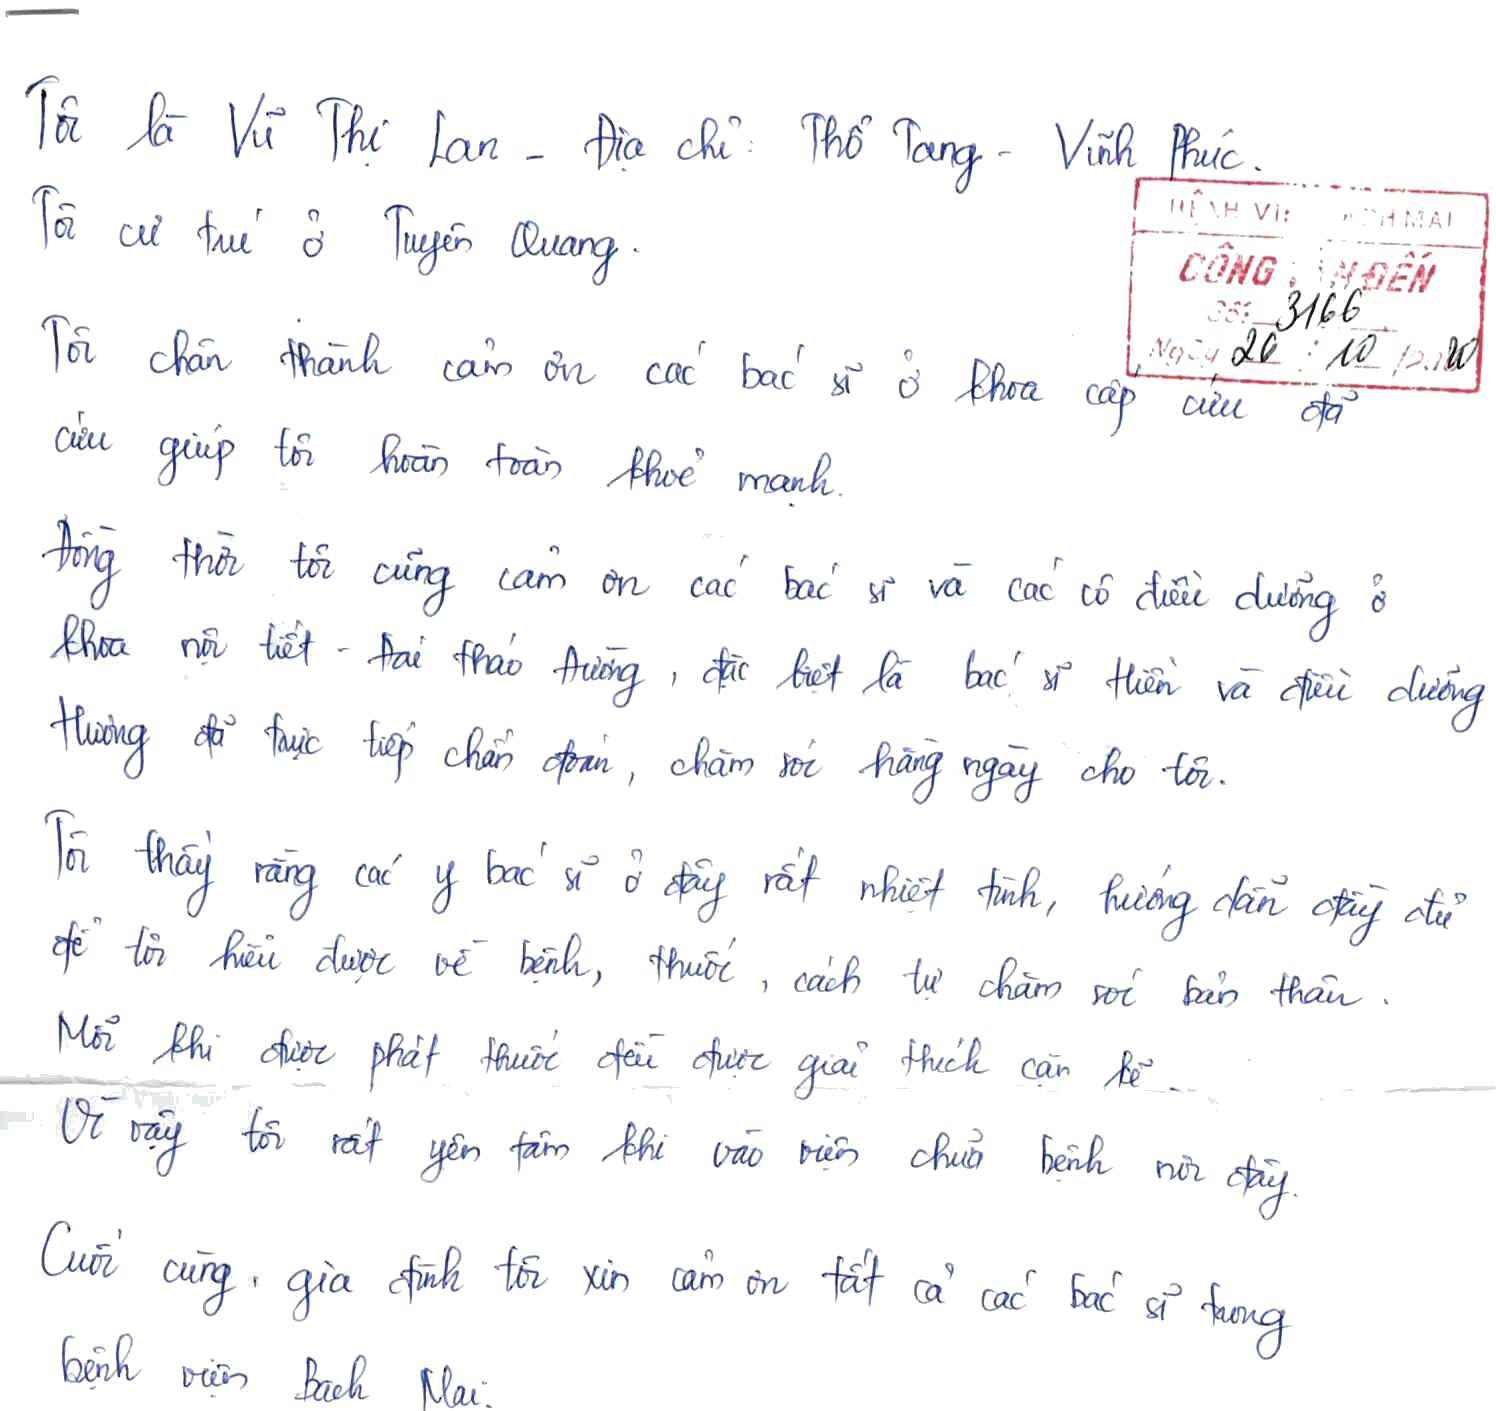 Tôi là Vũ Thị Lan - Địa chỉ: Thổ Tang - Vĩnh Phúc.
Tôi cư trú ở Tuyên Quang.
BỆNH VIỆN BẠCH MAI
CÔNG VĂN ĐẾN
Số: 3166
Ngày 20 : 10 /2020
Tôi chân thành cảm ơn các bác sĩ ở khoa cấp cứu đã
cứu giúp tôi hoàn toàn khoẻ mạnh.
Đồng thời tôi cũng cảm ơn các bác sĩ và các cô điều dưỡng ở
khoa nội tiết - Đái tháo đường, đặc biệt là bác sĩ Hiền và điều dưỡng
Hương đã trực tiếp chẩn đoán, chăm sóc hằng ngày cho tôi.
Tôi thấy rằng các y bác sĩ ở đây rất nhiệt tình, hướng dẫn đầy đủ
để tôi hiểu được về bệnh, thuốc, cách tự chăm sóc bản thân.
Mỗi khi được phát thuốc đều được giải thích cặn kẽ.
Vì vậy tôi rất yên tâm khi vào viện chữa bệnh nơi đây.
Cuối cùng, gia đình tôi xin cảm ơn tất cả các bác sĩ trong
bệnh viện Bạch Mai.